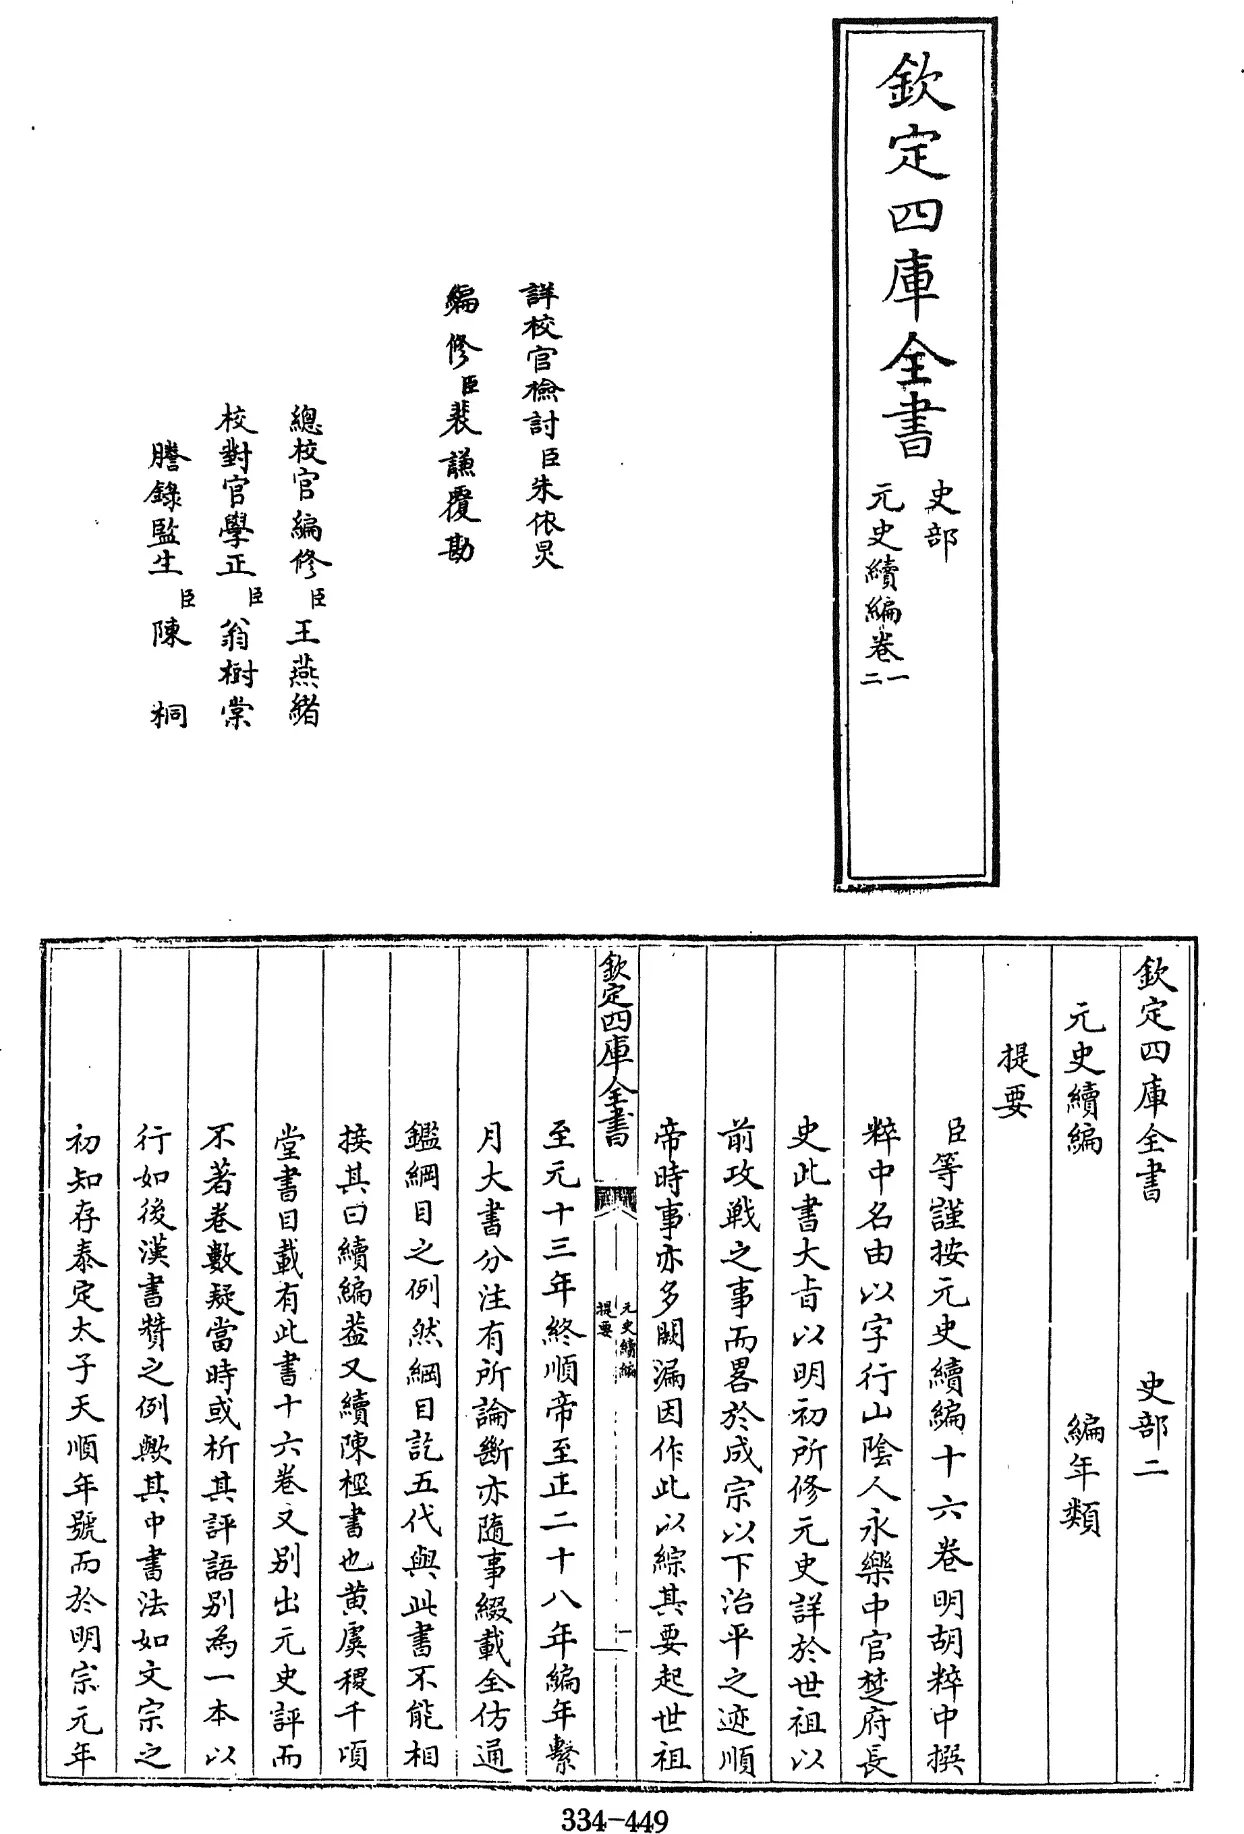 欽定四庫全書
史部
元史續編卷一
二
詳校官檢討臣朱依炅
編修臣裴謙覆勘
總校官編修臣王燕緒
校對官學正臣翁樹棠
謄錄監生臣陳桐
欽定四庫全書 史部二
元史續編 編年類
提要
臣等謹按元史續編十六卷明胡粹中撰
粹中名由以字行山陰人永樂中官楚府長
史此書大旨以明初所修元史詳於世祖以
前攻戰之事而畧於成宗以下治平之迹順
帝時事亦多闕漏因作此以綜其要起世祖
欽定四庫全書
元史續編
提要
一
至元十三年終順帝至正二十八年編年繫
月大書分注有所論斷亦隨事綴載全仿通
鑑綱目之例然綱目訖五代與此書不能相
接其曰續編葢又續陳桱書也黄虞稷千頃
堂書目載有此書十六卷又別出元史評而
不著卷數疑當時或析其評語別為一本以
行如後漢書贊之例歟其中書法如文宗之
初知存泰定太子天順年號而於明宗元年
334-449